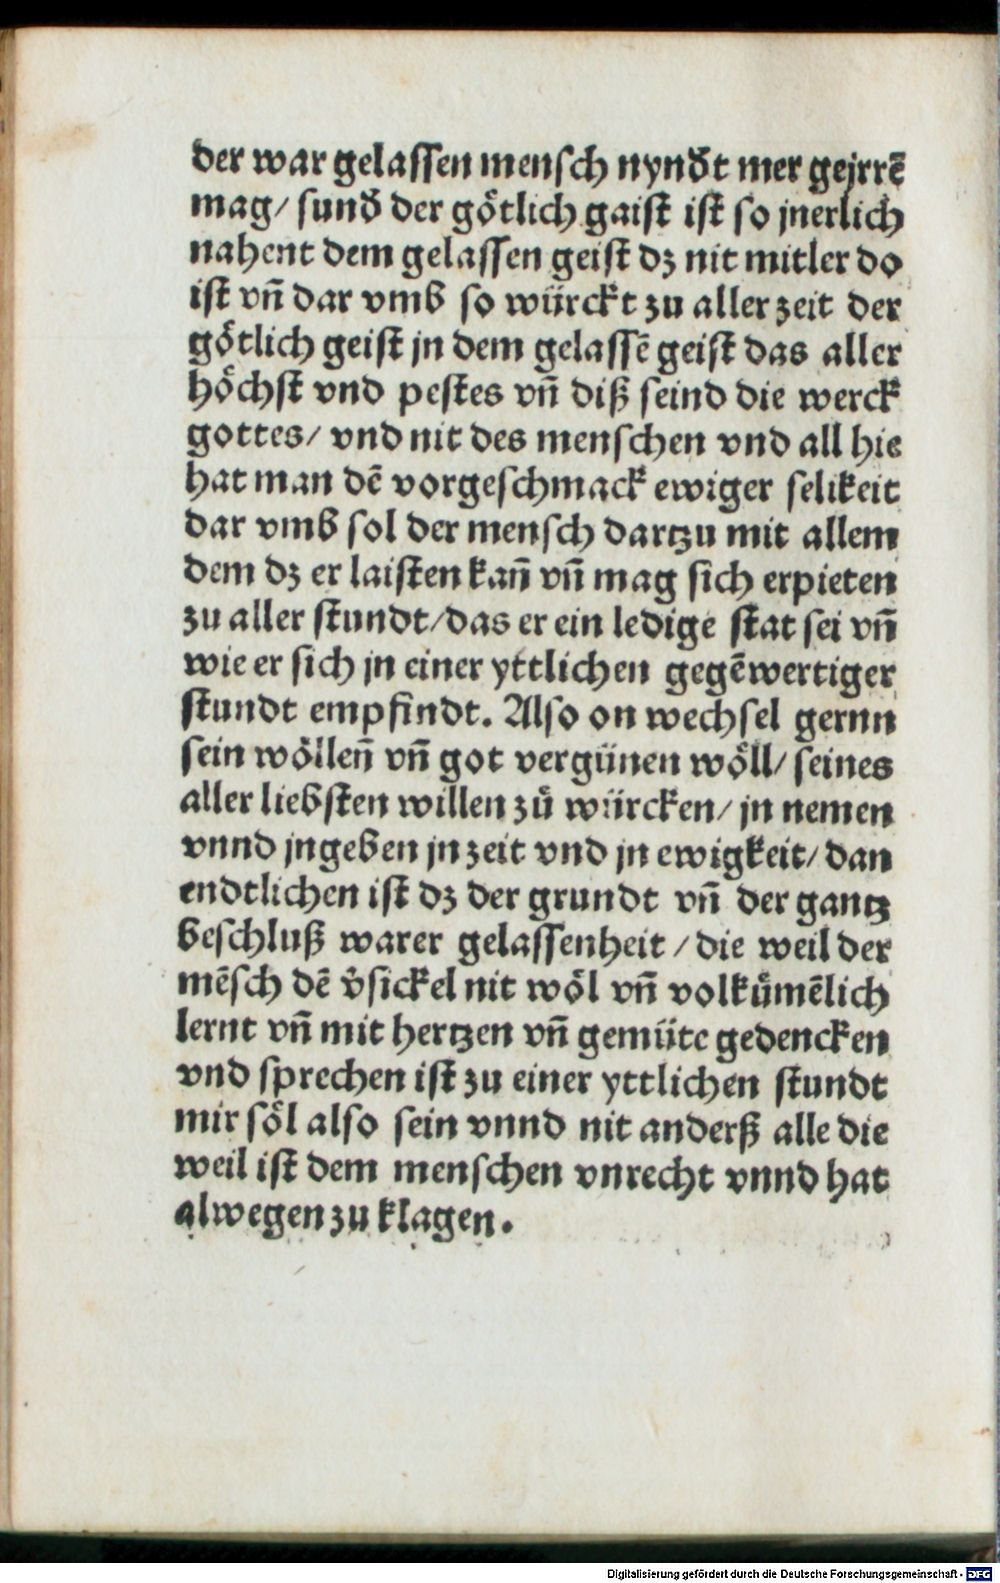 der war gelassen mensch nynd̕t mer gejrrē
mag/ sund̕ der götlich gaist ist so jnerlich
nahent dem gelassen geist dz nit mitler do
ist vn̄ dar vmb so würckt zu aller zeit der
götlich geist jn dem gelassē geist das aller
höchst vnd pestes vn̄ diß seind die werck
gottes/ vnd nit des menschen vnd all hie
hat man dē vorgeschmack ewiger selikeit
dar vmb sol der mensch dartzu mit allem
dem dz er laisten kan̄ vn̄ mag sich erpieten
zu aller stundt/das er ein ledige stat sei vn̄
wie er sich jn einer yttlichen gegēwertiger
stundt empfindt. Also on wechsel gernn
sein wöllen̄ vn̄ got vergünen wöll/ seines
aller liebsten willen zů würcken/ jn nemen
vnnd jngeben jn zeit vnd jn ewigkeit/ dan
endtlichen ist dz der grundt vn̄ der gantz
beschluß warer gelassenheit / die weil der
mēsch dē v̓sickel nit wöl vn̄ volkům̄elich
lernt vn̄ mit hertzen vn̄ gemüte gedencken
vnd sprechen ist zu einer yttlichen stundt
mir söl also sein vnnd nit anderß alle die
weil ist dem menschen vnrecht vnnd hat
alwegen zu klagen.
Digitalisierung gefördert durch die Deutsche Forschungsgemeinschaft - DFG